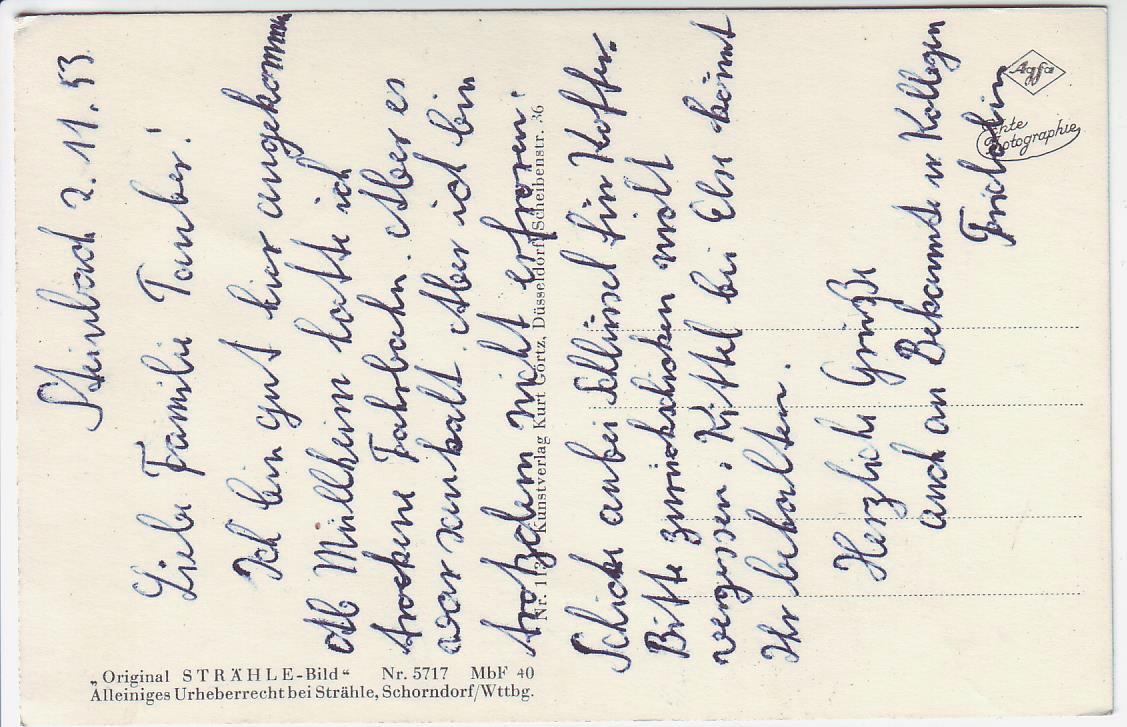 Steinbach 2.11.53
Liebe Familie Tauber!
Ich bin gut hier angekommen
Ab Müllheim hatte ich
trockene Fahrbahn. Aber es
war saukalt. Aber ich bin
trotzdem nicht erfroren.
Schicke anbei Schlüssel für Koffer.
Bitte zurückschicken nicht
vergessen. Kittel bei Else könnt
Ihr behalten.
Herzliche Grüße
auch an Bekannte u Kollegen
„Original STRÄHLE-Bild“ Nr. 5717 MbF 40
Alleiniges Urheberrecht bei Strähle, Schorndorf/Wttbg.
Kunstverlag Kurt Görtz, Düsseldorf, Scheibenstr. 36
Agfa
Echte
Photographie